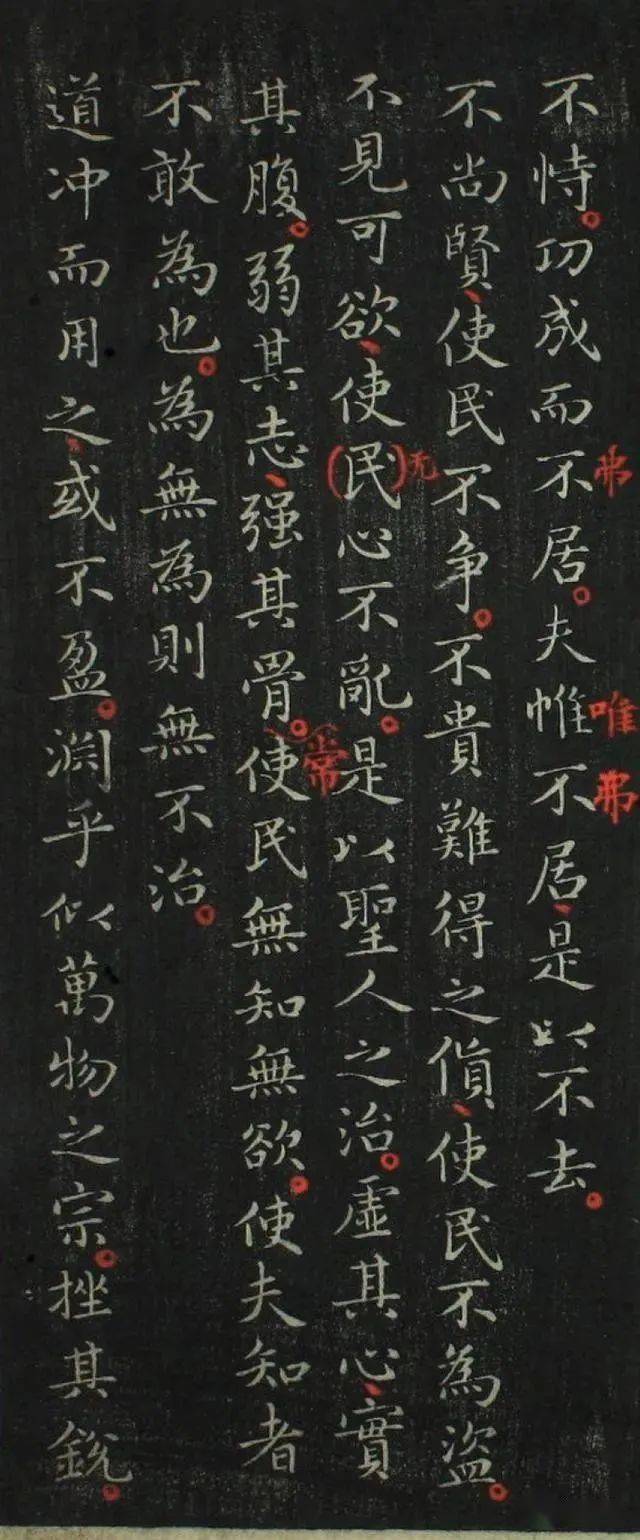 不恃。功成而不居。夫惟不居、是以不去。
弗
唯
弗
不尚賢、使民不争。不貴難得之貨、使民不為盗。
不見可欲、使(民)心不亂。是以聖人之治。虛其心、實
无
其腹。弱其志、强其骨。使民無知無欲。使夫知者
常
不敢為也。為無為則無不治。
道冲而用之、或不盈。淵乎似萬物之宗。挫其銳。